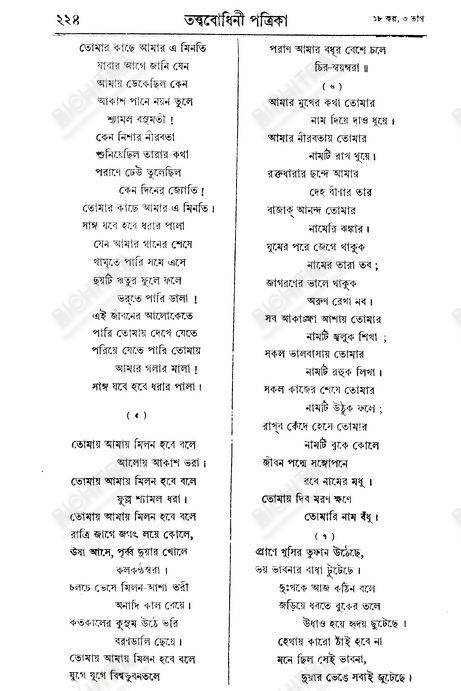 ২২৪
তত্ত্ববোধিনী পত্রিকা
১৮ কল্প, ৩ ভাগ
তোমার কাছে আমার এ মিনতি
যাবার আগে জানি যেন
আমায় ডেকেছিল কেন
আকাশ পানে নয়ন তুলে
শ্যামল বসুমতী !
কেন নিশার নীরবতা
শুনিয়েছিল তারার কথা
পরাণে ঢেউ তুলেছিল
কেন দিনের জ্যোতি !
তোমার কাছে আমার এ মিনতি।
সাঙ্গ যবে হবে ধরার পালা
যেন আমার গানের শেষে
থাম্‌তে পারি সমে এসে
ছয়টি ঋতুর ফুলে ফলে
ভর্‌তে পারি ডালা !
এই জীবনের আলোকেতে
পারি তোমায় দেখে যেতে
পরিয়ে যেতে পারি তোমায়
আমার গলার মালা !
সাঙ্গ যবে হবে ধরার পালা।
( ৫ )
তোমায় আমায় মিলন হবে বলে
আলোয় আকাশ ভরা।
তোমায় আমায় মিলন হবে বলে
ফুল্ল শ্যামল ধরা।
তোমায় আমায় মিলন হবে বলে
রাত্রি জাগে জগৎ লয়ে কোলে,
ঊষা আসে, পূর্ব্ব দুয়ার খোলে
কলকণ্ঠস্বরা।
চলচে ভেসে মিলন-আশা তরী
অনাদি কাল বেয়ে।
কতকালের কুসুম উঠে ভরি
বরণডালি ছেয়ে।
তোমায় আমায় মিলন হবে বলে
যুগে যুগে বিশ্বভুবনতলে
পরাণ আমার বধূর বেশে চলে
চির-স্বয়ম্বরা ॥
( ৬ )
আমার মুখের কথা তোমার
নাম দিয়ে দাও ধুয়ে।
আমার নীরবতায় তোমার
নামটি রাখ থুয়ে।
রক্তধারার ছন্দে আমার
দেহ বীণার তার
বাজাক্‌ আনন্দ তোমার
নামেরি ঝঙ্কার।
ঘুমের পরে জেগে থাকুক
নামের তারা তব;
জাগরণের ভালে থাকুক
অরুণ রেখা নব।
সব আকাঙ্ক্ষা আশায় তোমার
নামটি জ্বলুক শিখা ;
সকল ভালবাসায় তোমার
নামটি রহুক লিখা।
সকল কাজের শেষে তোমার
নামটি উঠুক ফলে ;
রাখ্‌ব কেঁদে হেসে তোমার
নামটি বুকে কোলে
জীবন পদ্মে সঙ্গোপনে
রবে নামের মধু।
তোমায় দিব মরণ ক্ষণে
তোমারি নাম বঁধু।
( ৭ )
প্রাণে খুসির তুফান উঠেছে,
ভয় ভাবনার বাধা টুটেছে।
দুঃখকে আজ কঠিন বলে
জড়িয়ে ধরতে বুকের তলে
উধাও হয়ে হৃদয় ছুটেছে।
হেথায় কারো ঠাঁই হবে না
মনে ছিল সেই ভাবনা,
দুয়ার ভেঙে সবাই জুটেছে।